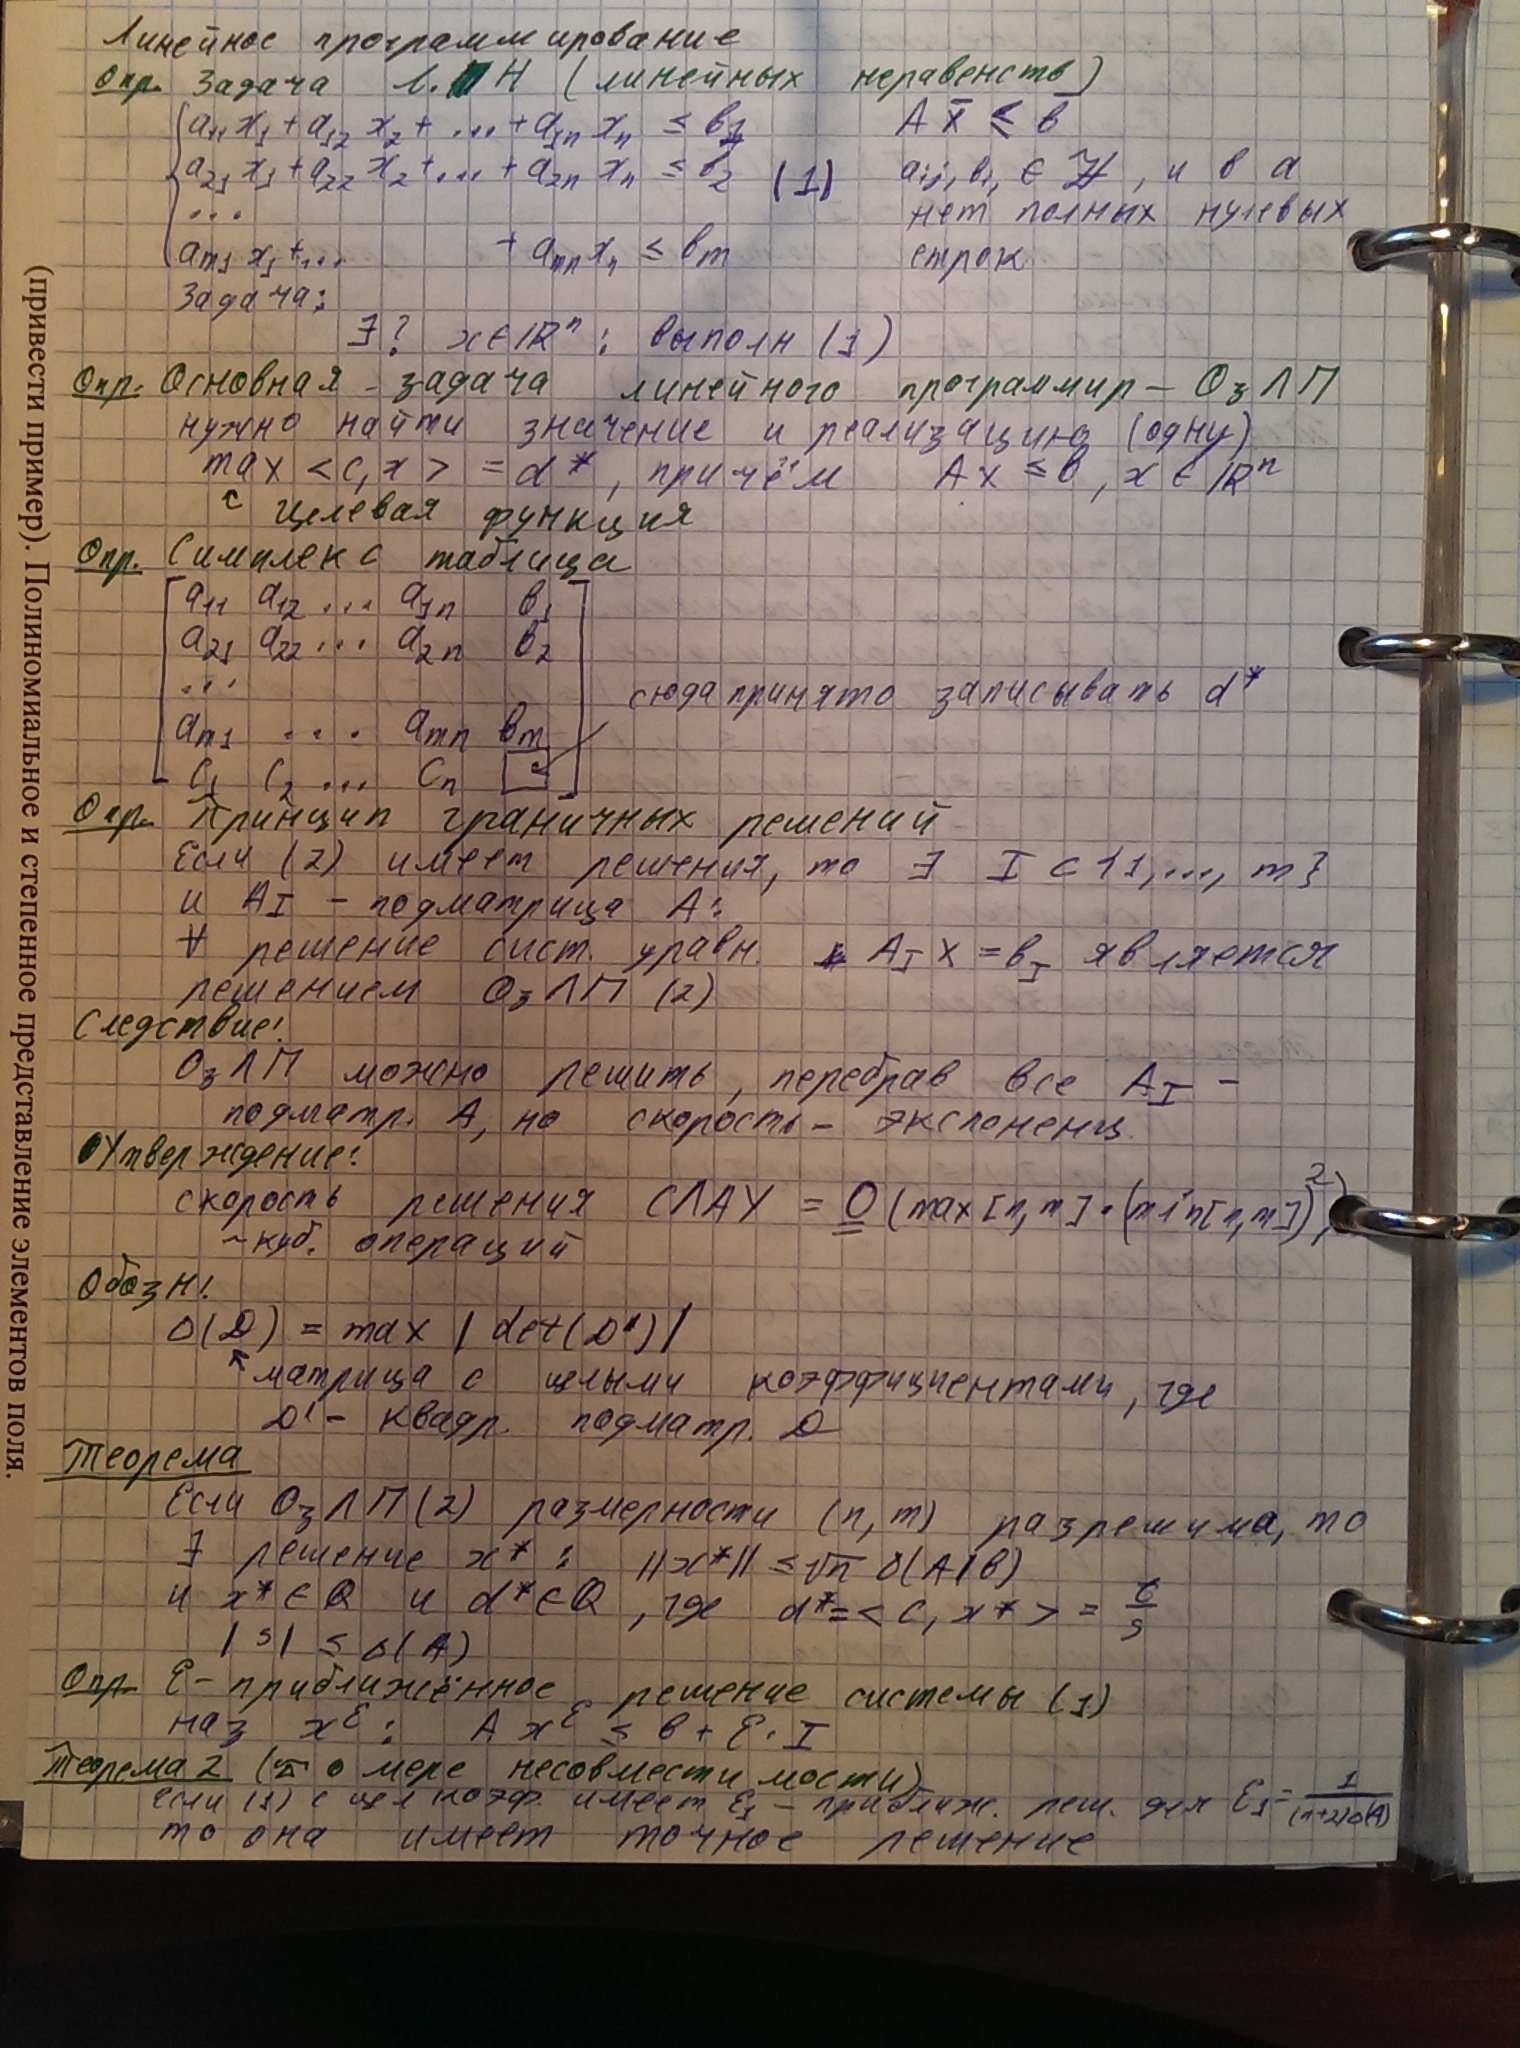 Линейное программирование
Опр. Задача Л.Н (линейных неравенств)
a₁₁x₁ + a₁₂x₂ + ... + a₁ₙxₙ ≤ b₁ A x̄ ≤ b̄
a₂₁x₁ + a₂₂x₂ + ... + a₂ₙxₙ ≤ b₂ (1) aᵢⱼ, bᵢ, ∈ ℤ, и в а
... нет полных нулевых
aₘ₁x₁ + ... + aₘₙxₙ ≤ bₘ строк
Задача:
∃? x ∈ ℝⁿ: выполн (1)
Опр. Основная - задача линейного программир - ОзЛП
нужно найти значение и реализацию (одну)
max <c, x> = d*, причём Ax ≤ b, x ∈ ℝⁿ
целевая функция
Опр. Симплекс таблица
a₁₁ a₁₂ ... a₁ₙ b₁
a₂₁ a₂₂ ... a₂ₙ b₂
...
сюда принято записывать d*
aₘ₁ .... aₘₙ bₘ
c₁ c₂ ... cₙ
Опр. Принцип граничных решений
Если (2) имеет решения, то ∃ I ⊂ {1, ..., m}
и A_I - подматрица A:
∀ решение сист. уравн. A_I x = b_I является
решением ОзЛП (2)
Следствие:
ОзЛП можно решить, перебрав все A_I -
подматр. A, но скорость - экспоненц.
Утверждение:
скорость решения СЛАУ = O(max[n,m]·(min[n,m])²)
~куб. операций
Обозн:
Δ(D) = max |det(D')|
матрица с целыми коэффициентами, где
D' - квадр. подматр. D
Теорема
Если ОзЛП (2) размерности (n, m) разрешима, то
∃ решение x*: ||x*|| ≤ √n Δ(A|b)
и x* ∈ ℚ и d* ∈ ℚ, где d* = <c, x*> = t/s
|s| ≤ Δ(A)
Опр. ε - приближённое решение системы (1)
наз x^ε: A x^ε ≤ b + ε·I
Теорема 2 (о мере несовместимости)
если (1) с цел коэф. имеет ε₁ - приближ. реш. для ε₁ = 1/((n+2)Δ(A))
то она имеет точное решение
(привести пример). Полиномиальное и степенное представление элементов поля.